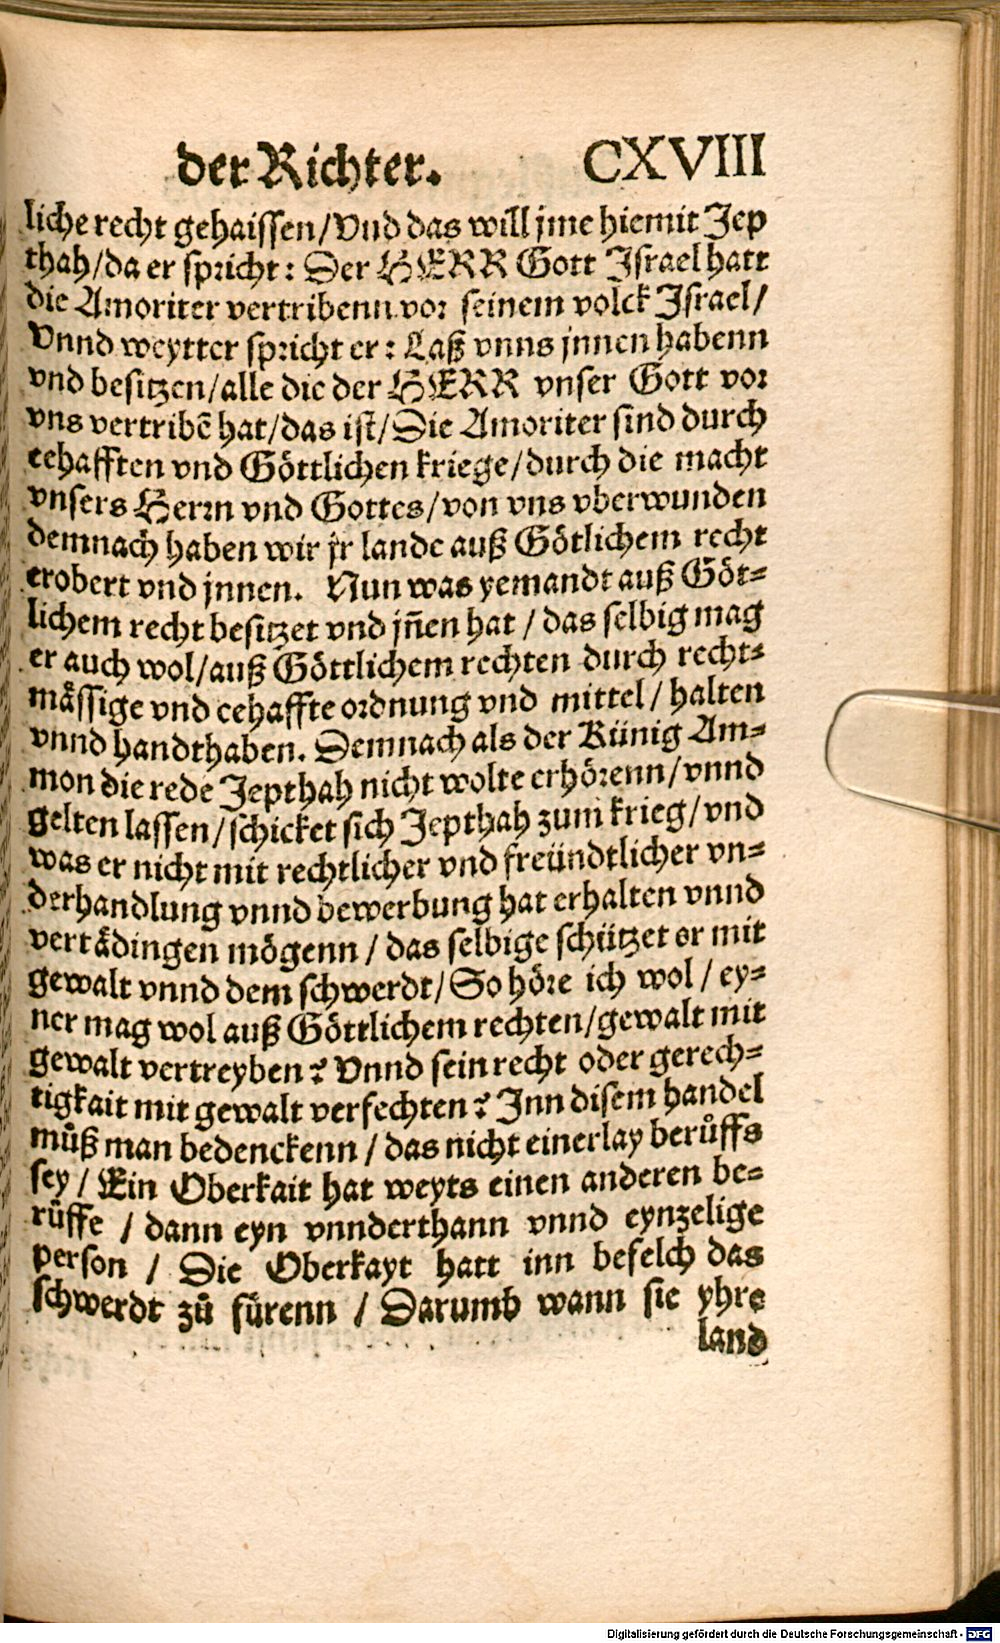 der Richter. CXVIII
liche recht gehaissen/Vnd das will jme hiemit Jep
thah/da er spricht: Der HERR Gott Israel hatt
die Amoriter vertribenn vor seinem volck Israel/
Vnnd weytter spricht er: Laß vnns jnnen habenn
vnd besitzen/alle die der HERR vnser Gott vor
vns vertribẽ hat/das ist/Die Amoriter sind durch
eehafften vnd Göttlichen kriege/durch die macht
vnsers Herrn vnd Gottes/von vns vberwunden
demnach haben wir jr lande auß Götlichem recht
erobert vnd jnnen. Nun was yemandt auß Göt-
lichem recht besitzet vnd jñen hat / das selbig mag
er auch wol/auß Göttlichem rechten durch recht-
mässige vnd eehaffte ordnung vnd mittel/ halten
vnnd handthaben. Demnach als der Künig Am-
mon die rede Jepthah nicht wolte erhörenn/vnnd
gelten lassen/schicket sich Jepthah zum krieg/vnd
was er nicht mit rechtlicher vnd freündtlicher vn-
derhandlung vnnd bewerbung hat erhalten vnnd
vertädingen mögenn / das selbige schützet er mit
gewalt vnnd dem schwerdt/ So höre ich wol / ey-
ner mag wol auß Göttlichem rechten/gewalt mit
gewalt vertreyben? Vnnd sein recht oder gerech-
tigkait mit gewalt verfechten? Inn disem handel
můß man bedenckenn / das nicht einerlay berůffs
sey / Ein Oberkait hat weyts einen anderen be-
růffe / dann eyn vnnderthann vnnd eynzelige
person / Die Oberkayt hatt inn befelch das
schwerdt zů fürenn / Darumb wann sie yhre
land
Digitalisierung gefördert durch die Deutsche Forschungsgemeinschaft - DFG